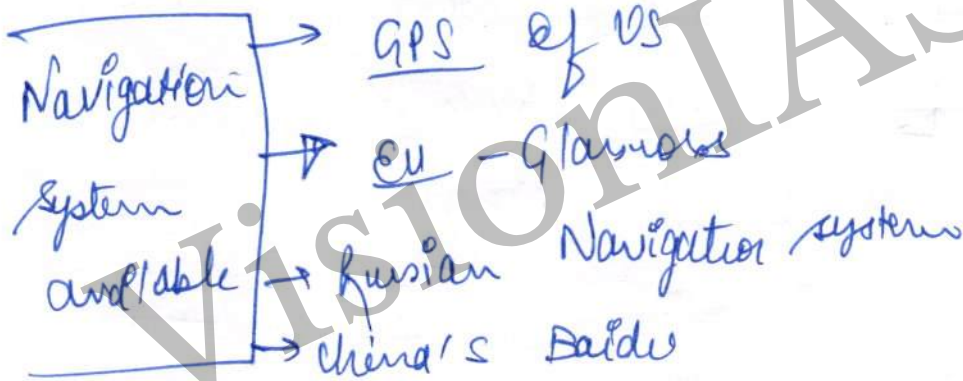 Navigation system available
→ GPS of US
→ EU - Glasnoss
→ Russian Navigation system
→ China's Baidu
VisionIAS